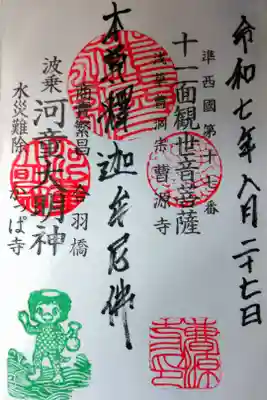 令和七年八月二十七日
準西國第十七番
十一面観世音菩薩
浅草曹洞宗 曹源寺
本尊釋迦牟尼佛
商売繁昌 合羽橋
波乗 河童大明神
水災難除 かっぱ寺
曹源寺印